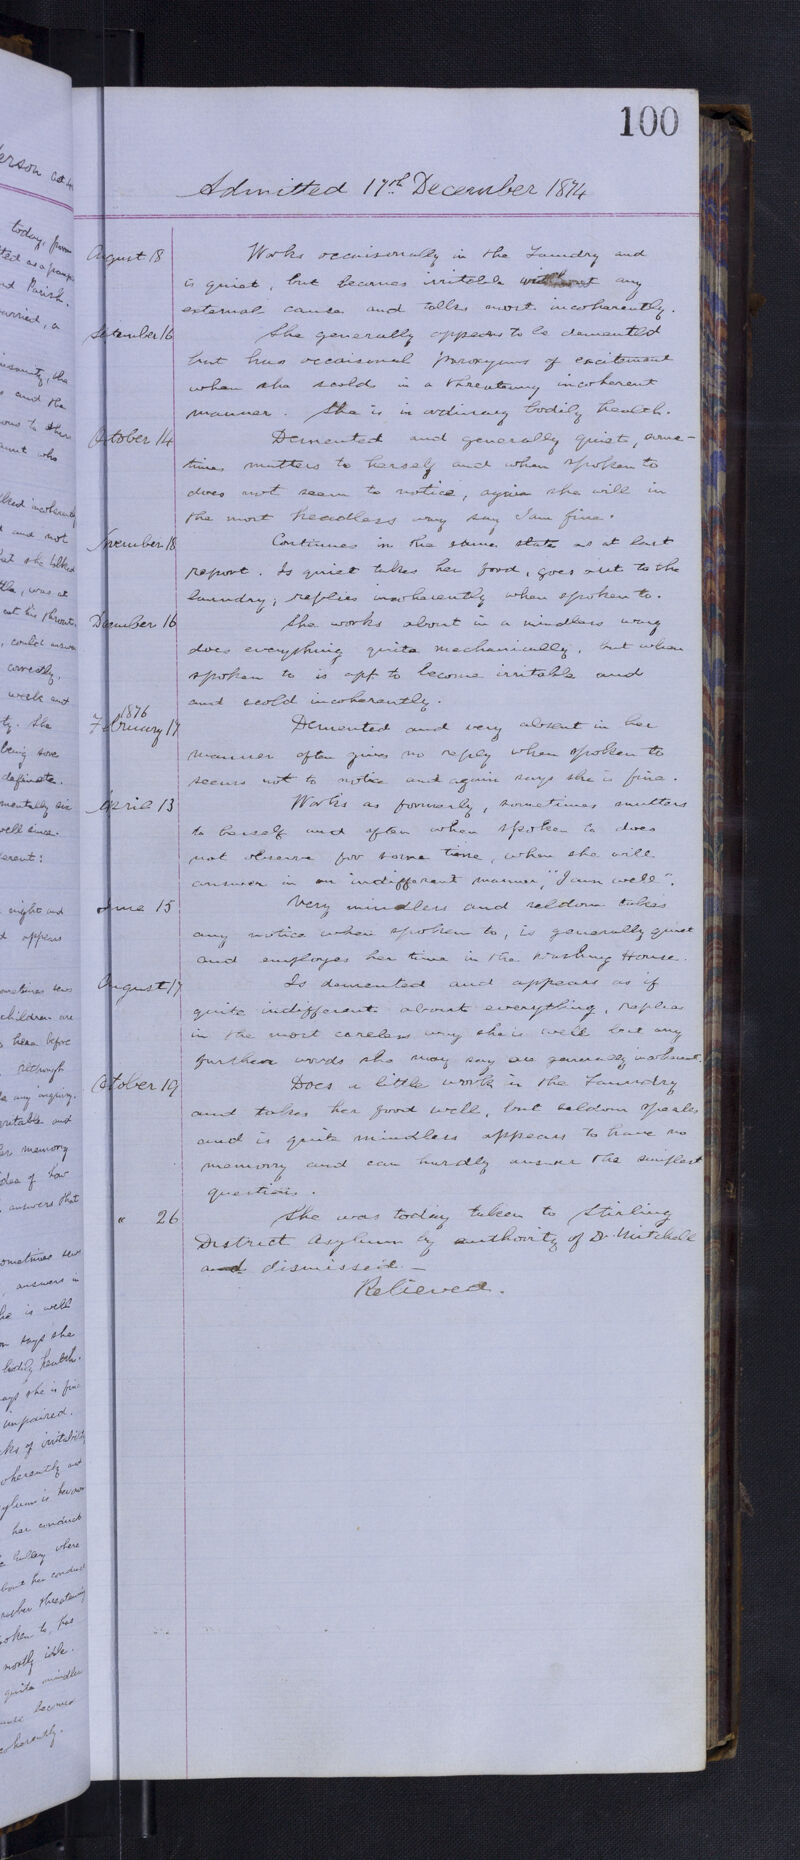 100
Admitted 17th December 1874
August 18 Works occaisonally in the Laundry and
is quiet, but becomes irritable without any
external cause and talks most incoherently.
September 16 She generally appears to be demented
but has occaisonal paroxysms of excitement
when she scolds in a threatening incoherent
manner. She is in ordinary bodily health.
October 14 Demented and generally quiet, some-
times mutters to herself and when spoken to
does not seem to notice, again she will in
the most heedless way say I am fine.
November 18 Continues in the same state as at last
report. Is quiet takes her food, goes out to the
laundry, replies incoherently when spoken to.
December 16 She works about in a mindless way
does everything quite mechanically, but when
spoken to is apt to become irritable and
and scold incoherently.
1876
February 17 Demented and very absent in her
manner often gives no reply when spoken to
seems not to notice and again says she is fine.
April 13 Works as formerly, sometimes mutters
to herself and often when spoken to does
not observe for some time, when she will
answer in an indifferent manner, "I am well".
June 15 Very mindless and seldom takes
any notice when spoken to, is generally quiet
and employs her time in the Washing House.
August 17 Is demented and appears as if
quite indifferent about everything, replies
in the most careless way she is well but any
further words she may say are generally incoherent.
October 19 Does a little work in the Laundry
and takes her food well, but seldom speaks
and is quite mindless appears to have no
memory and can hardly answer the simplest
questions.
" 26 She was today taken to Stirling
District Asylum by authority of Dr Mitchell
and dismissed. —
Relieved.